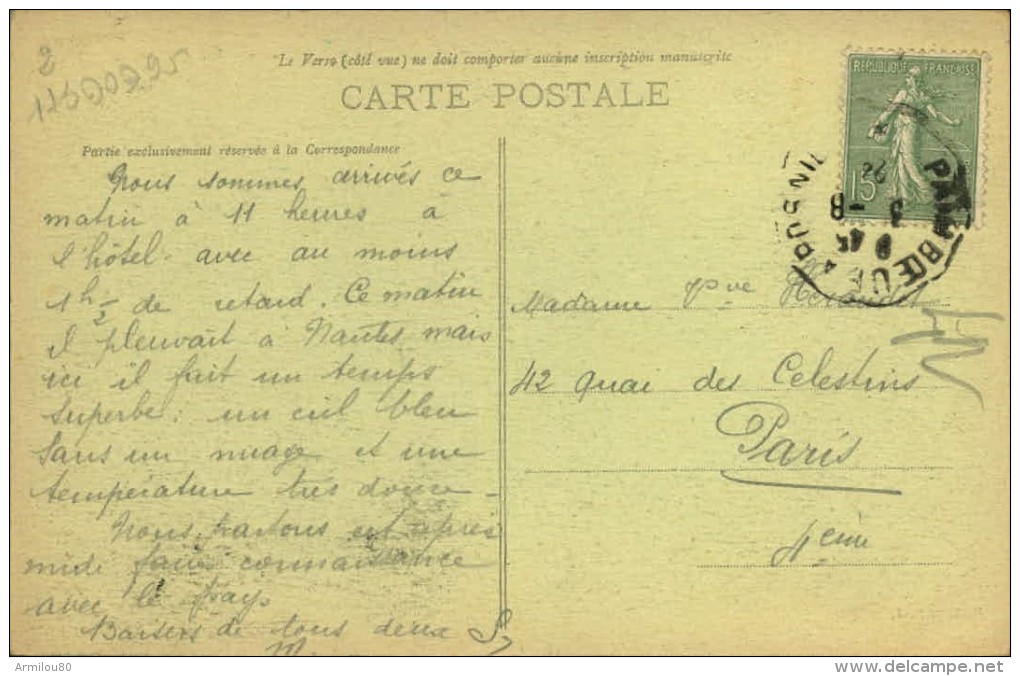 2
Le Verso (côté vue) ne doit comporter aucune inscription manuscrite
CARTE POSTALE
Partie exclusivement réservée à la Correspondance
RÉPUBLIQUE FRANÇAISE
15
PAIMBŒUF
8 45
3 - 8
26
Nous sommes arrivés ce
matin à 11 heures à
l'hôtel avec au moins
1h 1/2 de retard. Ce matin
il pleuvait à Nantes mais
ici il fait un temps
superbe : un ciel bleu
sans un nuage et une
température très douce -
Nous partons cet après
midi faire connaissance
avec le pays
Baisers de tous deux
M.
Madame Vve
42 Quai des Celestins
Paris
4eme
Armilou80
delcampe.net